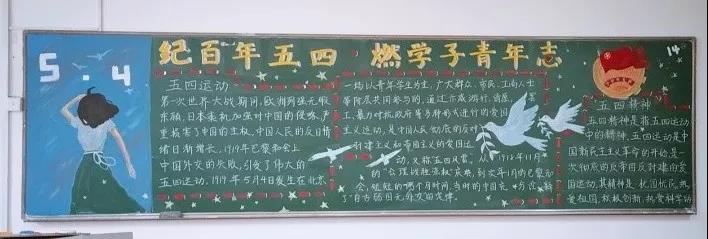 5.4
纪百年五四·燃学子青年志
14
五四运动
第一次世界大战期间,欧洲列强无暇
东顾,日本乘机加强对中国的侵略,严
重损害了中国的主权,中国人民的反日情
绪日渐增长,1919年巴黎和会上
中国外交的失败,引发了伟大的
五四运动,1919年5月4日发生在北京
一场以青年学生为主,广大群众、市民、工商人士
等阶层共同参与的,通过示威游行,请愿、
工、暴力对抗政府等多种形式进行的爱国
主义运动,是中国人民彻底的反对
封建主义的爱国运
动,又称"五四风雷"。从1918年11月
的"公理战胜强权"庆典,到次年1月的巴黎
会,短短的两个月时间,当时的中国充
了"自古弱国无外交的定律。
"五四精神"
五四精神是指五四运动
中的精神,五四运动是中
国新民主主义革命的开始,是一
次彻底的反帝反封建的爱
国运动,其精神是忧国忧民,热
爱祖国,积极创新,热爱科学的